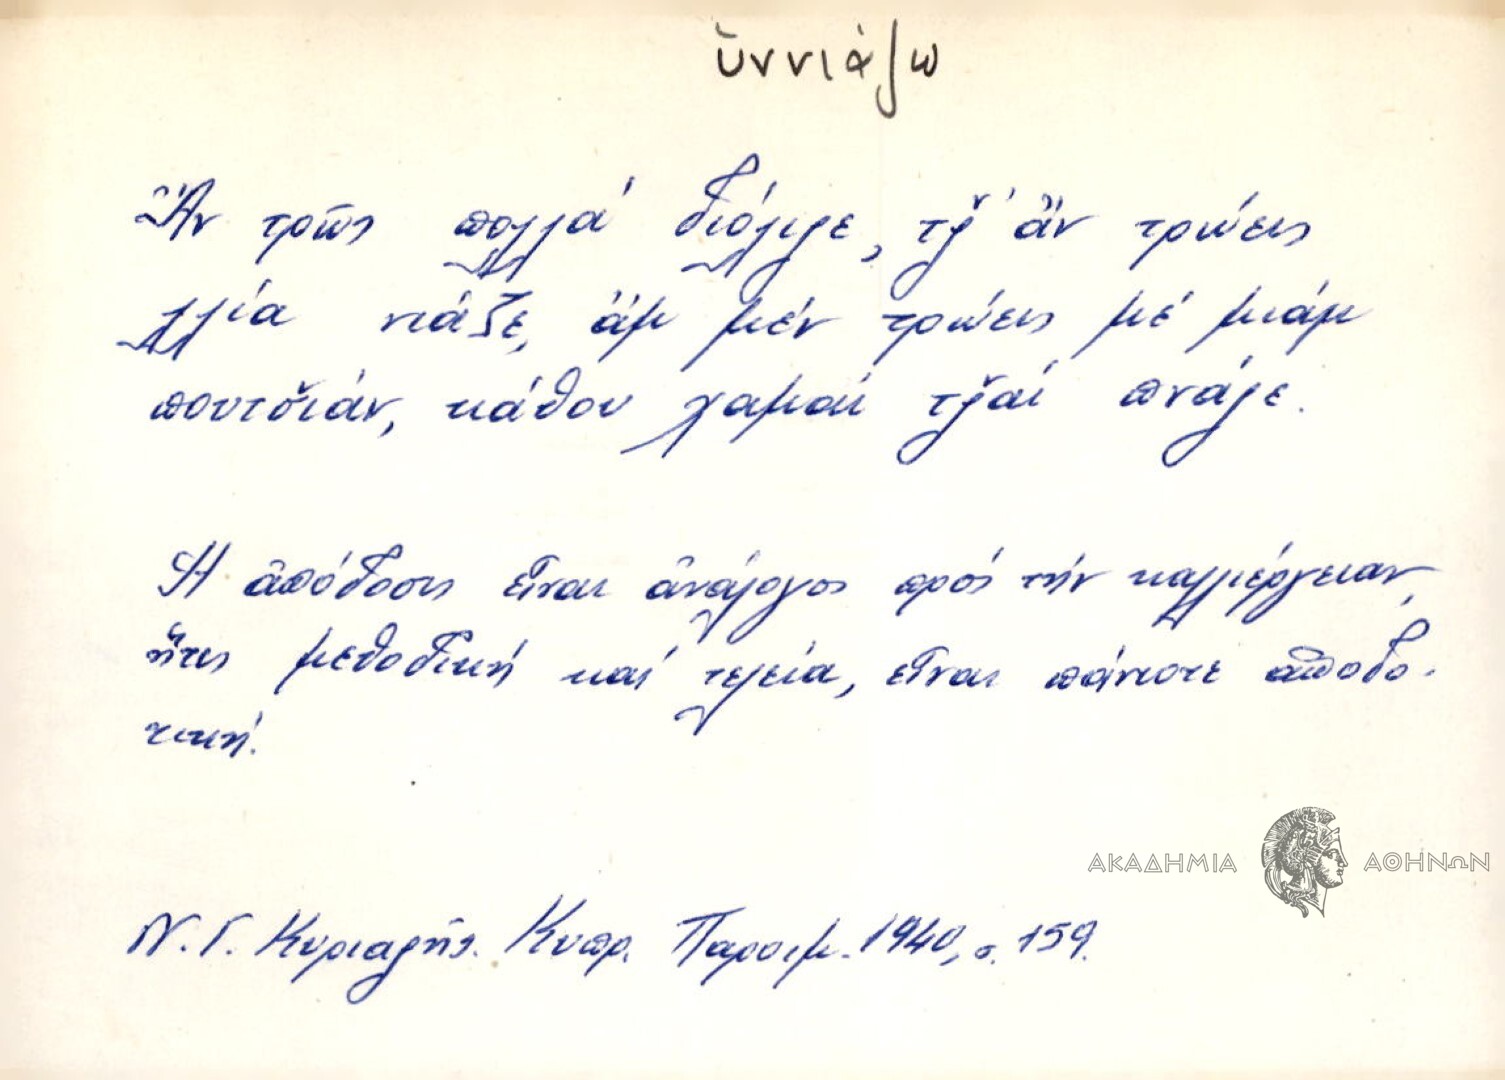 ὑννιάζω
Ἂν τρῶς πολλὰ διόλιζε, τζ̌' ἂν τρώεις
λλία νιάζε, ἂμ μὲν τρώεις μὲ μιὰμ
πουτσ̌ιάν, κάθου χαμαὶ τζ̌αὶ πνάζε.
Ἡ ἀπόδοσις εἶναι ἀνάλογος πρὸς τὴν καλλιέργειαν,
ἥτις μεθοδικὴ καὶ τελεία, εἶναι πάντοτε ἀποδο-
τική.
Ν. Γ. Κυριαζῆς. Κυπρ. Παροιμ. 1940, σ. 159.
ΑΚΑΔΗΜΙΑ ΑΘΗΝΩΝ